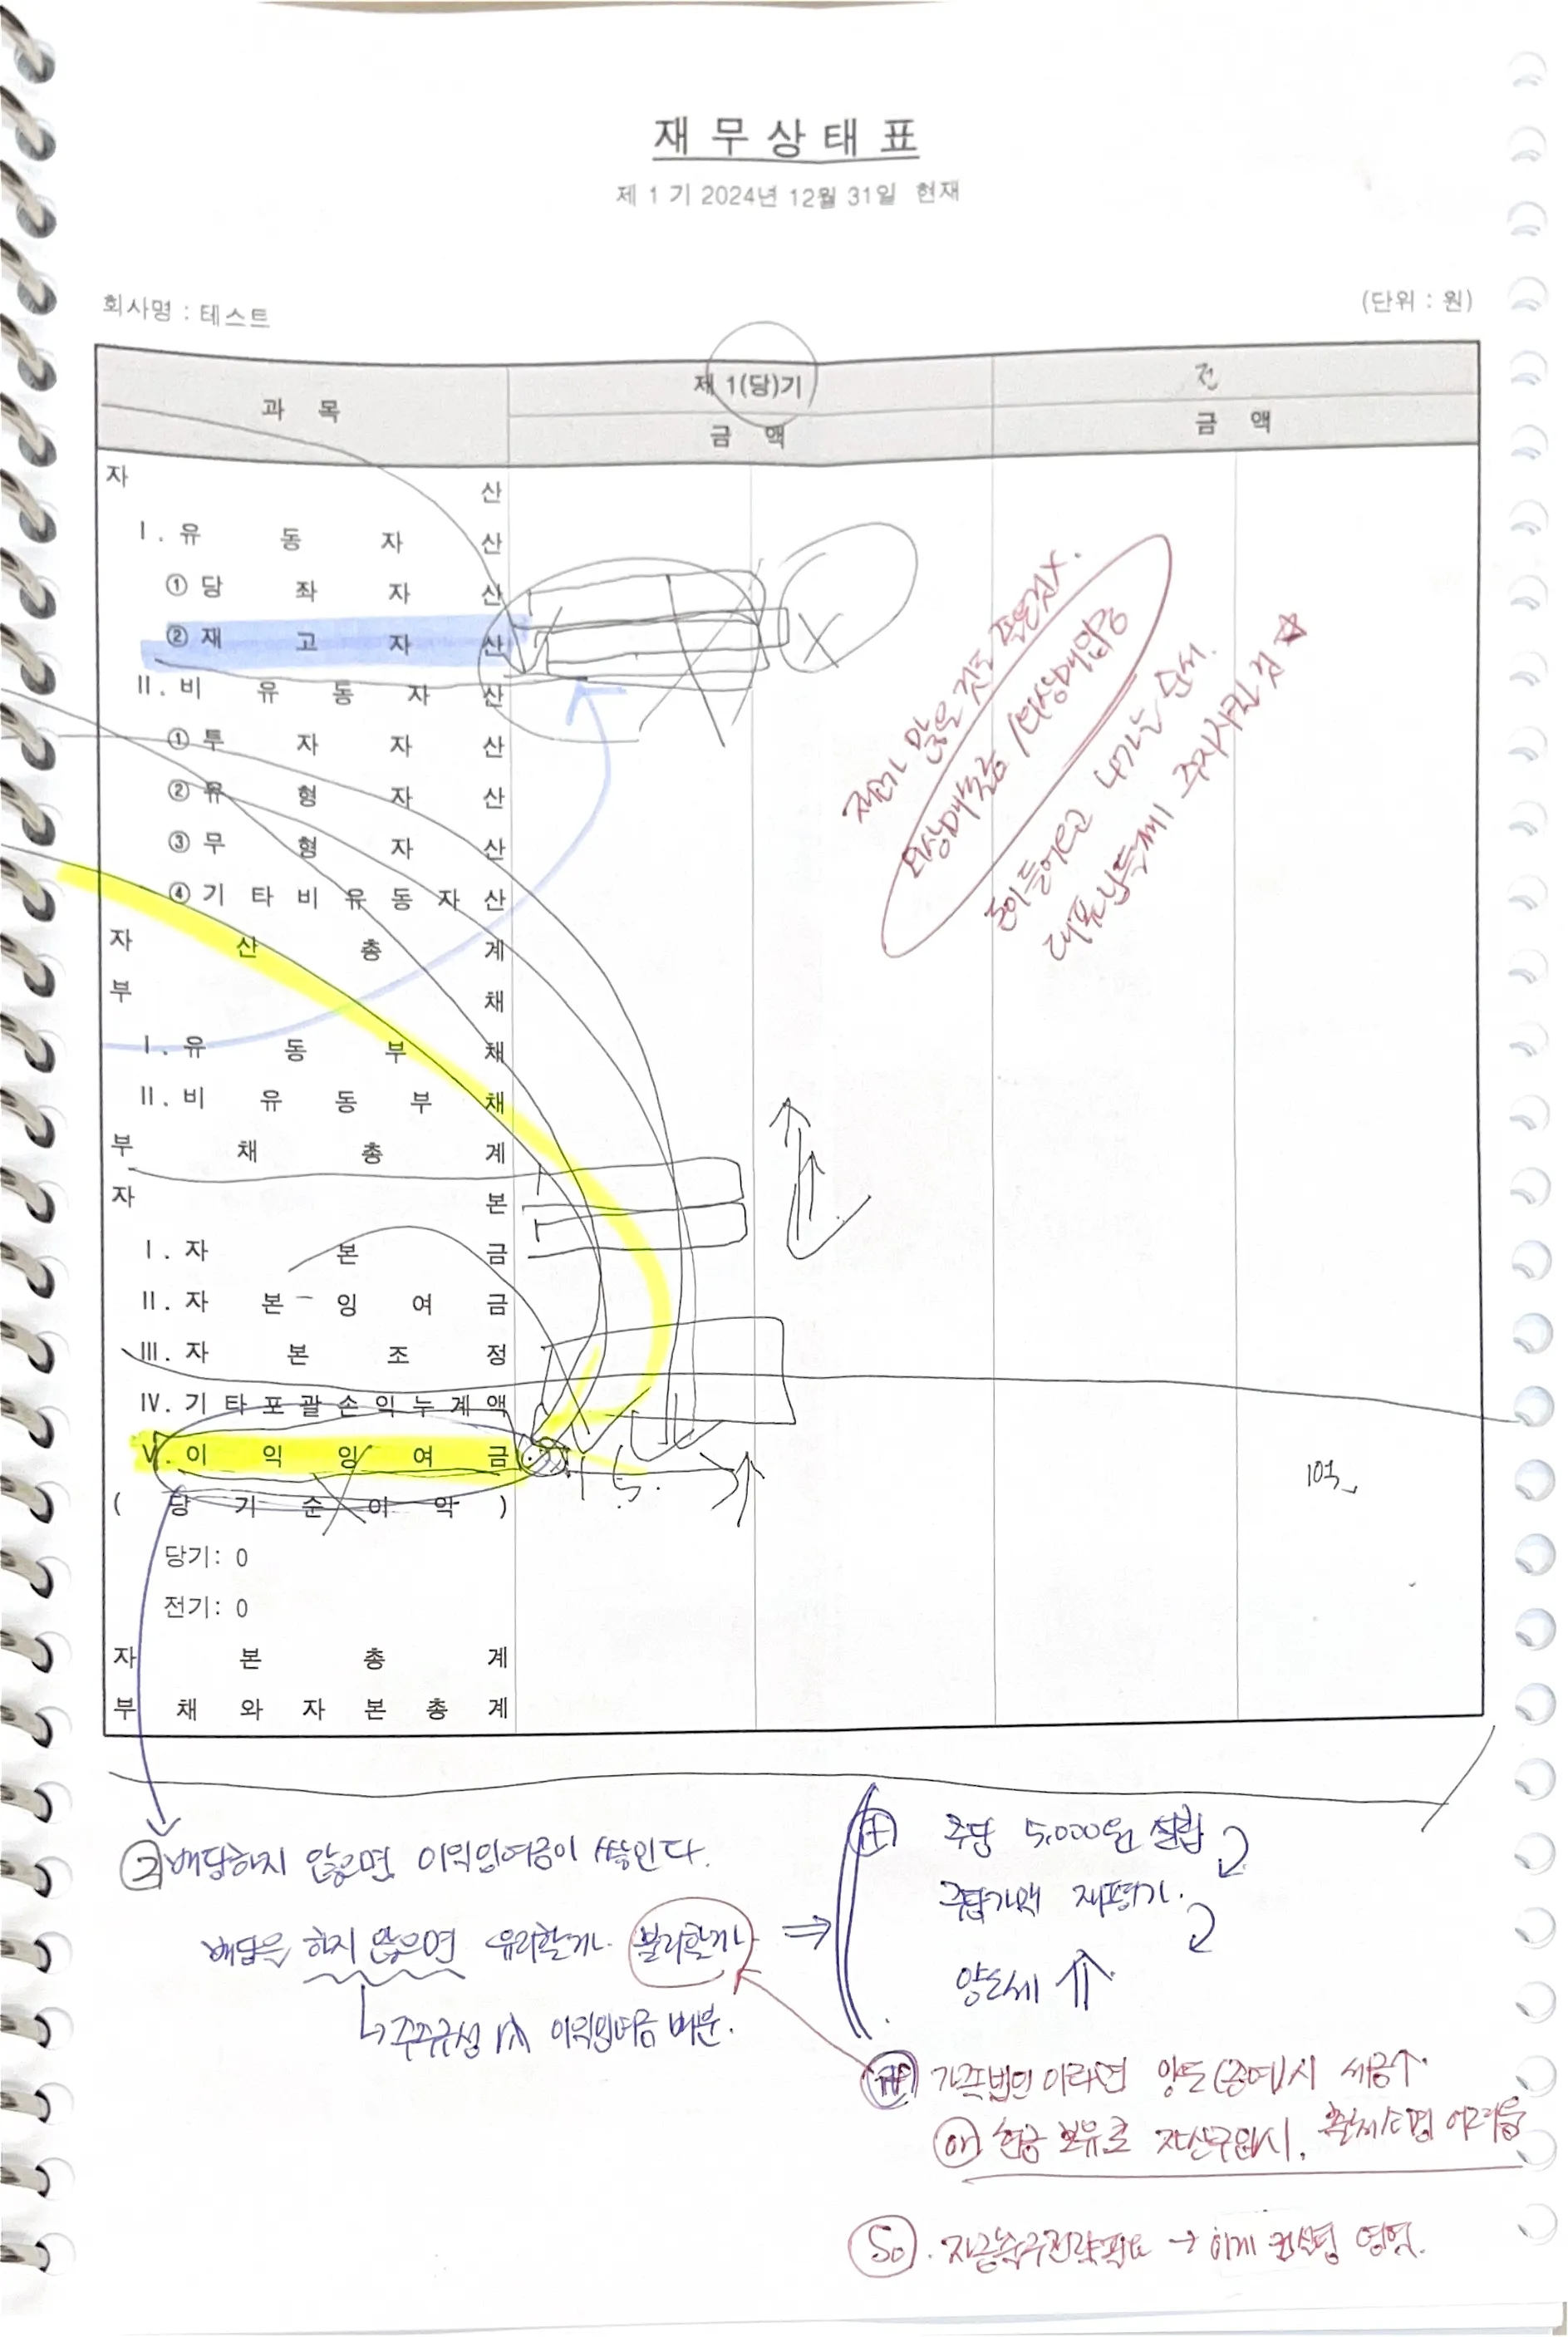 재 무 상 태 표
제 1 기 2024년 12월 31일 현재
회사명 : 테스트
(단위 : 원)
과 목
제 1(당)기
전
금 액
금 액
자 산
I. 유 동 자 산
① 당 좌 자 산
② 재 고 자 산
II. 비 유 동 자 산
① 투 자 자 산
② 유 형 자 산
③ 무 형 자 산
④ 기 타 비 유 동 자 산
자 산 총 계
부 채
I. 유 동 부 채
II. 비 유 동 부 채
부 채 총 계
자 본
I. 자 본 금
II. 자 본 잉 여 금
III. 자 본 조 정
IV. 기 타 포 괄 손 익 누 계 액
V. 이 익 잉 여 금
( 당 기 순 이 익 )
당기: 0
전기: 0
자 본 총 계
부 채 와 자 본 총 계
많은 것도 좋은것X.
외상매출금 / 외상매입금
돈이 들어오고 나가는 순서.
10억
② 배당하지 않으면 이익잉여금이 쌓인다.
배당을 하지 않으면 유리할까 불리할까 ⇒
↳ 주주구성 後 이익잉여금 배분.
주당 5,000원 설립
주당가액 재평가.
양도세 ⇑
가족법인이라면 양도(증여)시 세금↑
or 현금 보유로 자산구입시, 출처소명 어려움
So. 자금출구전략필요 → 이게 컨설팅 영역.